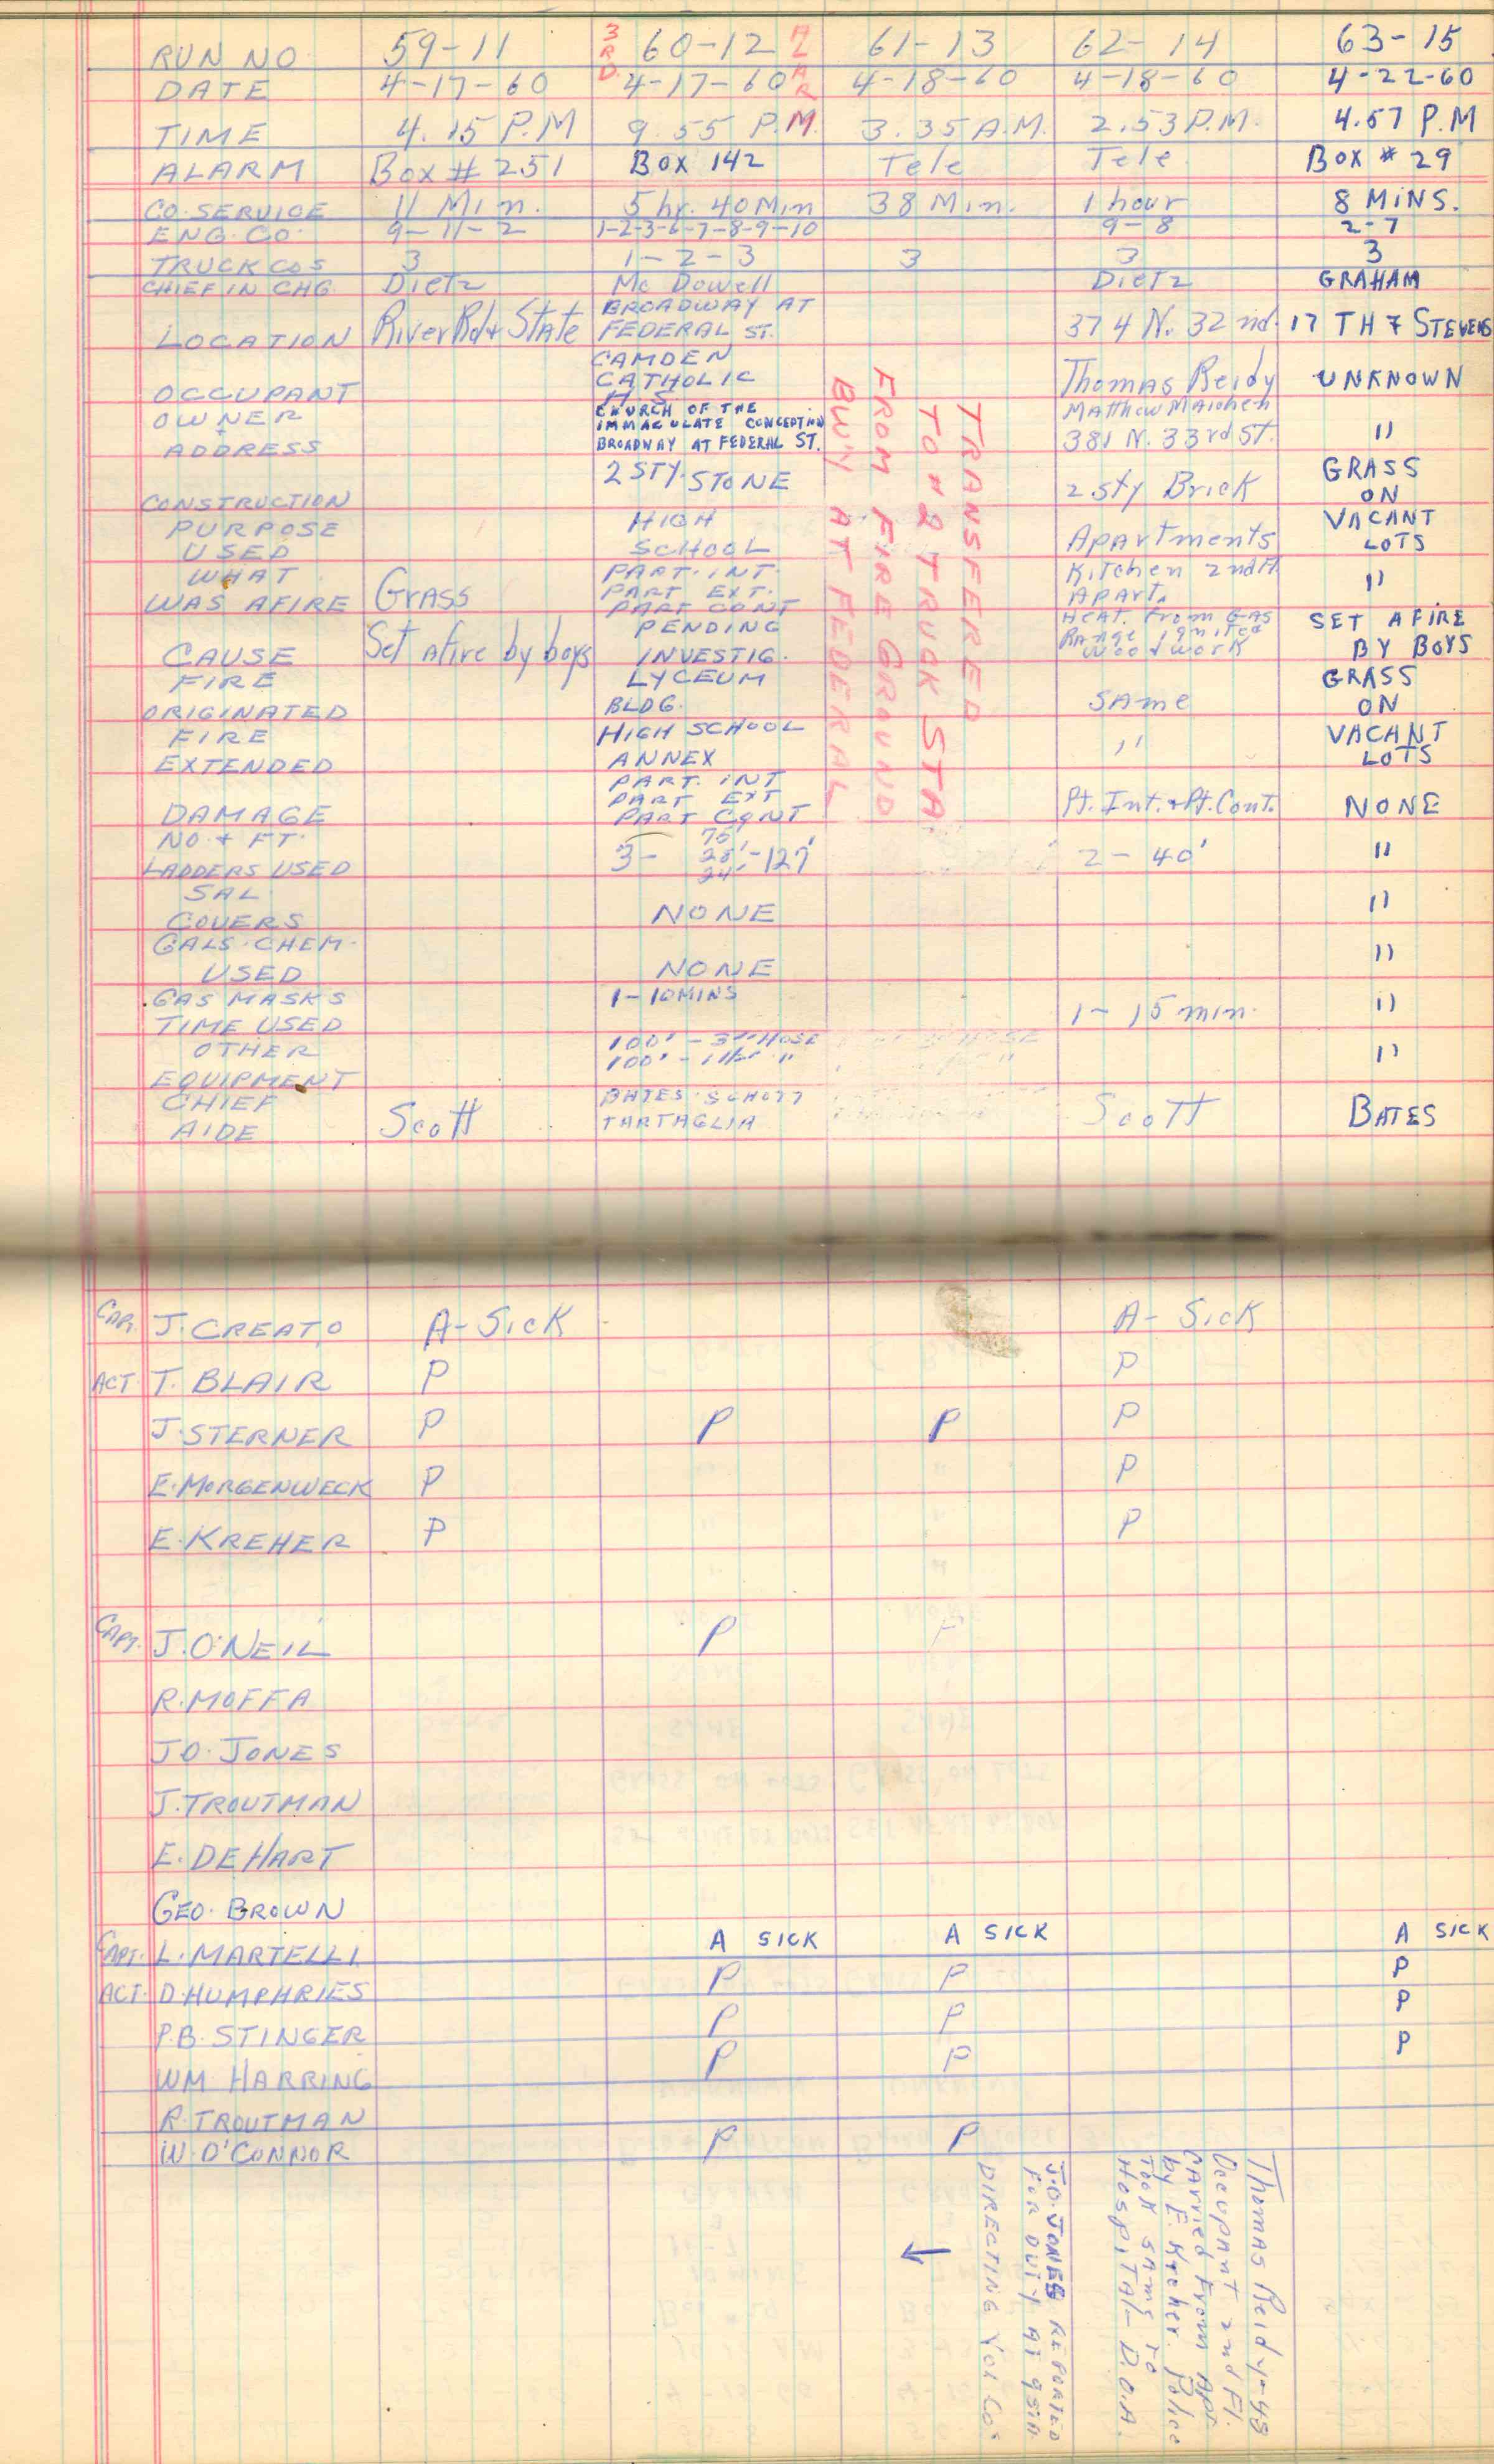 RUN NO. 59-11 3RD 60-12 ALAR 61-13 62-14 63-15
DATE 4-17-60 4-17-60 4-18-60 4-18-60 4-22-60
TIME 4.15 P.M 9.55 P.M. 3.35 A.M. 2.53 P.M. 4.57 P.M
ALARM Box # 251 BOX 142 Tele Tele BOX # 29
CO. SERVICE 11 Min. 5 hr. 40 Min 38 Min. 1 hour 8 MINS.
ENG. CO. 9-11-2 1-2-3-6-7-8-9-10 9-8 2-7
TRUCK COS 3 1-2-3 3 3 3
CHIEF IN CHG. Dietz Mc Dowell Dietz GRAHAM
LOCATION River Rd & State BROADWAY AT FEDERAL ST. 374 N. 32nd. 17 TH & STEVENS
OCCUPANT CAMDEN CATHOLIC H.S. Thomas Reidy UNKNOWN
OWNER + ADDRESS CHURCH OF THE IMMACULATE CONCEPTION BROADWAY AT FEDERAL ST. Matthew 381 N. 33rd ST. "
CONSTRUCTION 2 STY. STONE 2 sty Brick GRASS ON
PURPOSE USED HIGH SCHOOL Apartments VACANT LOTS
WHAT WAS AFIRE Grass PART. INT. PART EXT. PART CONT Kitchen 2nd Fl. APART. "
CAUSE Set afire by boys PENDING INVESTIG. HEAT. From GAS Range ignited woodwork SET AFIRE BY BOYS
FIRE ORIGINATED LYCEUM BLDG. SAme GRASS ON
FIRE EXTENDED HIGH SCHOOL ANNEX " VACANT LOTS
DAMAGE PART. INT PART EXT PART CONT Pt. Int. + Pt. Cont. NONE
NO. + FT. LADDERS USED 3- 75' 28' 24' -127' 2-40' "
SAL COVERS NONE "
GALS. CHEM. USED NONE "
GAS MASKS TIME USED 1-10 MINS 1-15 min. "
OTHER EQUIPMENT 100' - 3" HOSE 100' - 1 1/2" " "
CHIEF AIDE Scott BATES SCHOTT TARTAGLIA Scott BATES
TRANSFERED
TO #2 TRUCK STA
FROM FIRE GROUND
BWY AT FEDERAL
CAP. J. CREATO A-Sick A-Sick
ACT. T. BLAIR P P
J. STERNER P P P P
E. MORGENWECK P P
E. KREHER P P
CAPT. J. O'NEIL P P
R. MOFFA
J.O. JONES
J. TROUTMAN
E. DEHART
GEO. BROWN
CAPT. L. MARTELLI A SICK A SICK A SICK
ACT. D. HUMPHRIES P P P
P.B. STINGER P P P
WM HARRING P P P
R. TROUTMAN
W. O'CONNOR P P
Thomas Reidy-43
Occupant 2nd Fl.
CARRied From Apt.
by E. Kreher. Police
TOOK SAME TO
HOSPITAL- D.O.A.
J.O. JONES REPORTED
FOR DUTY AT
DIRECTING
←